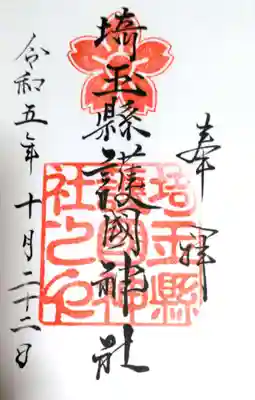 奉拝
埼玉縣護國神社
埼玉縣
護國神
社之印
令和五年十月二十二日